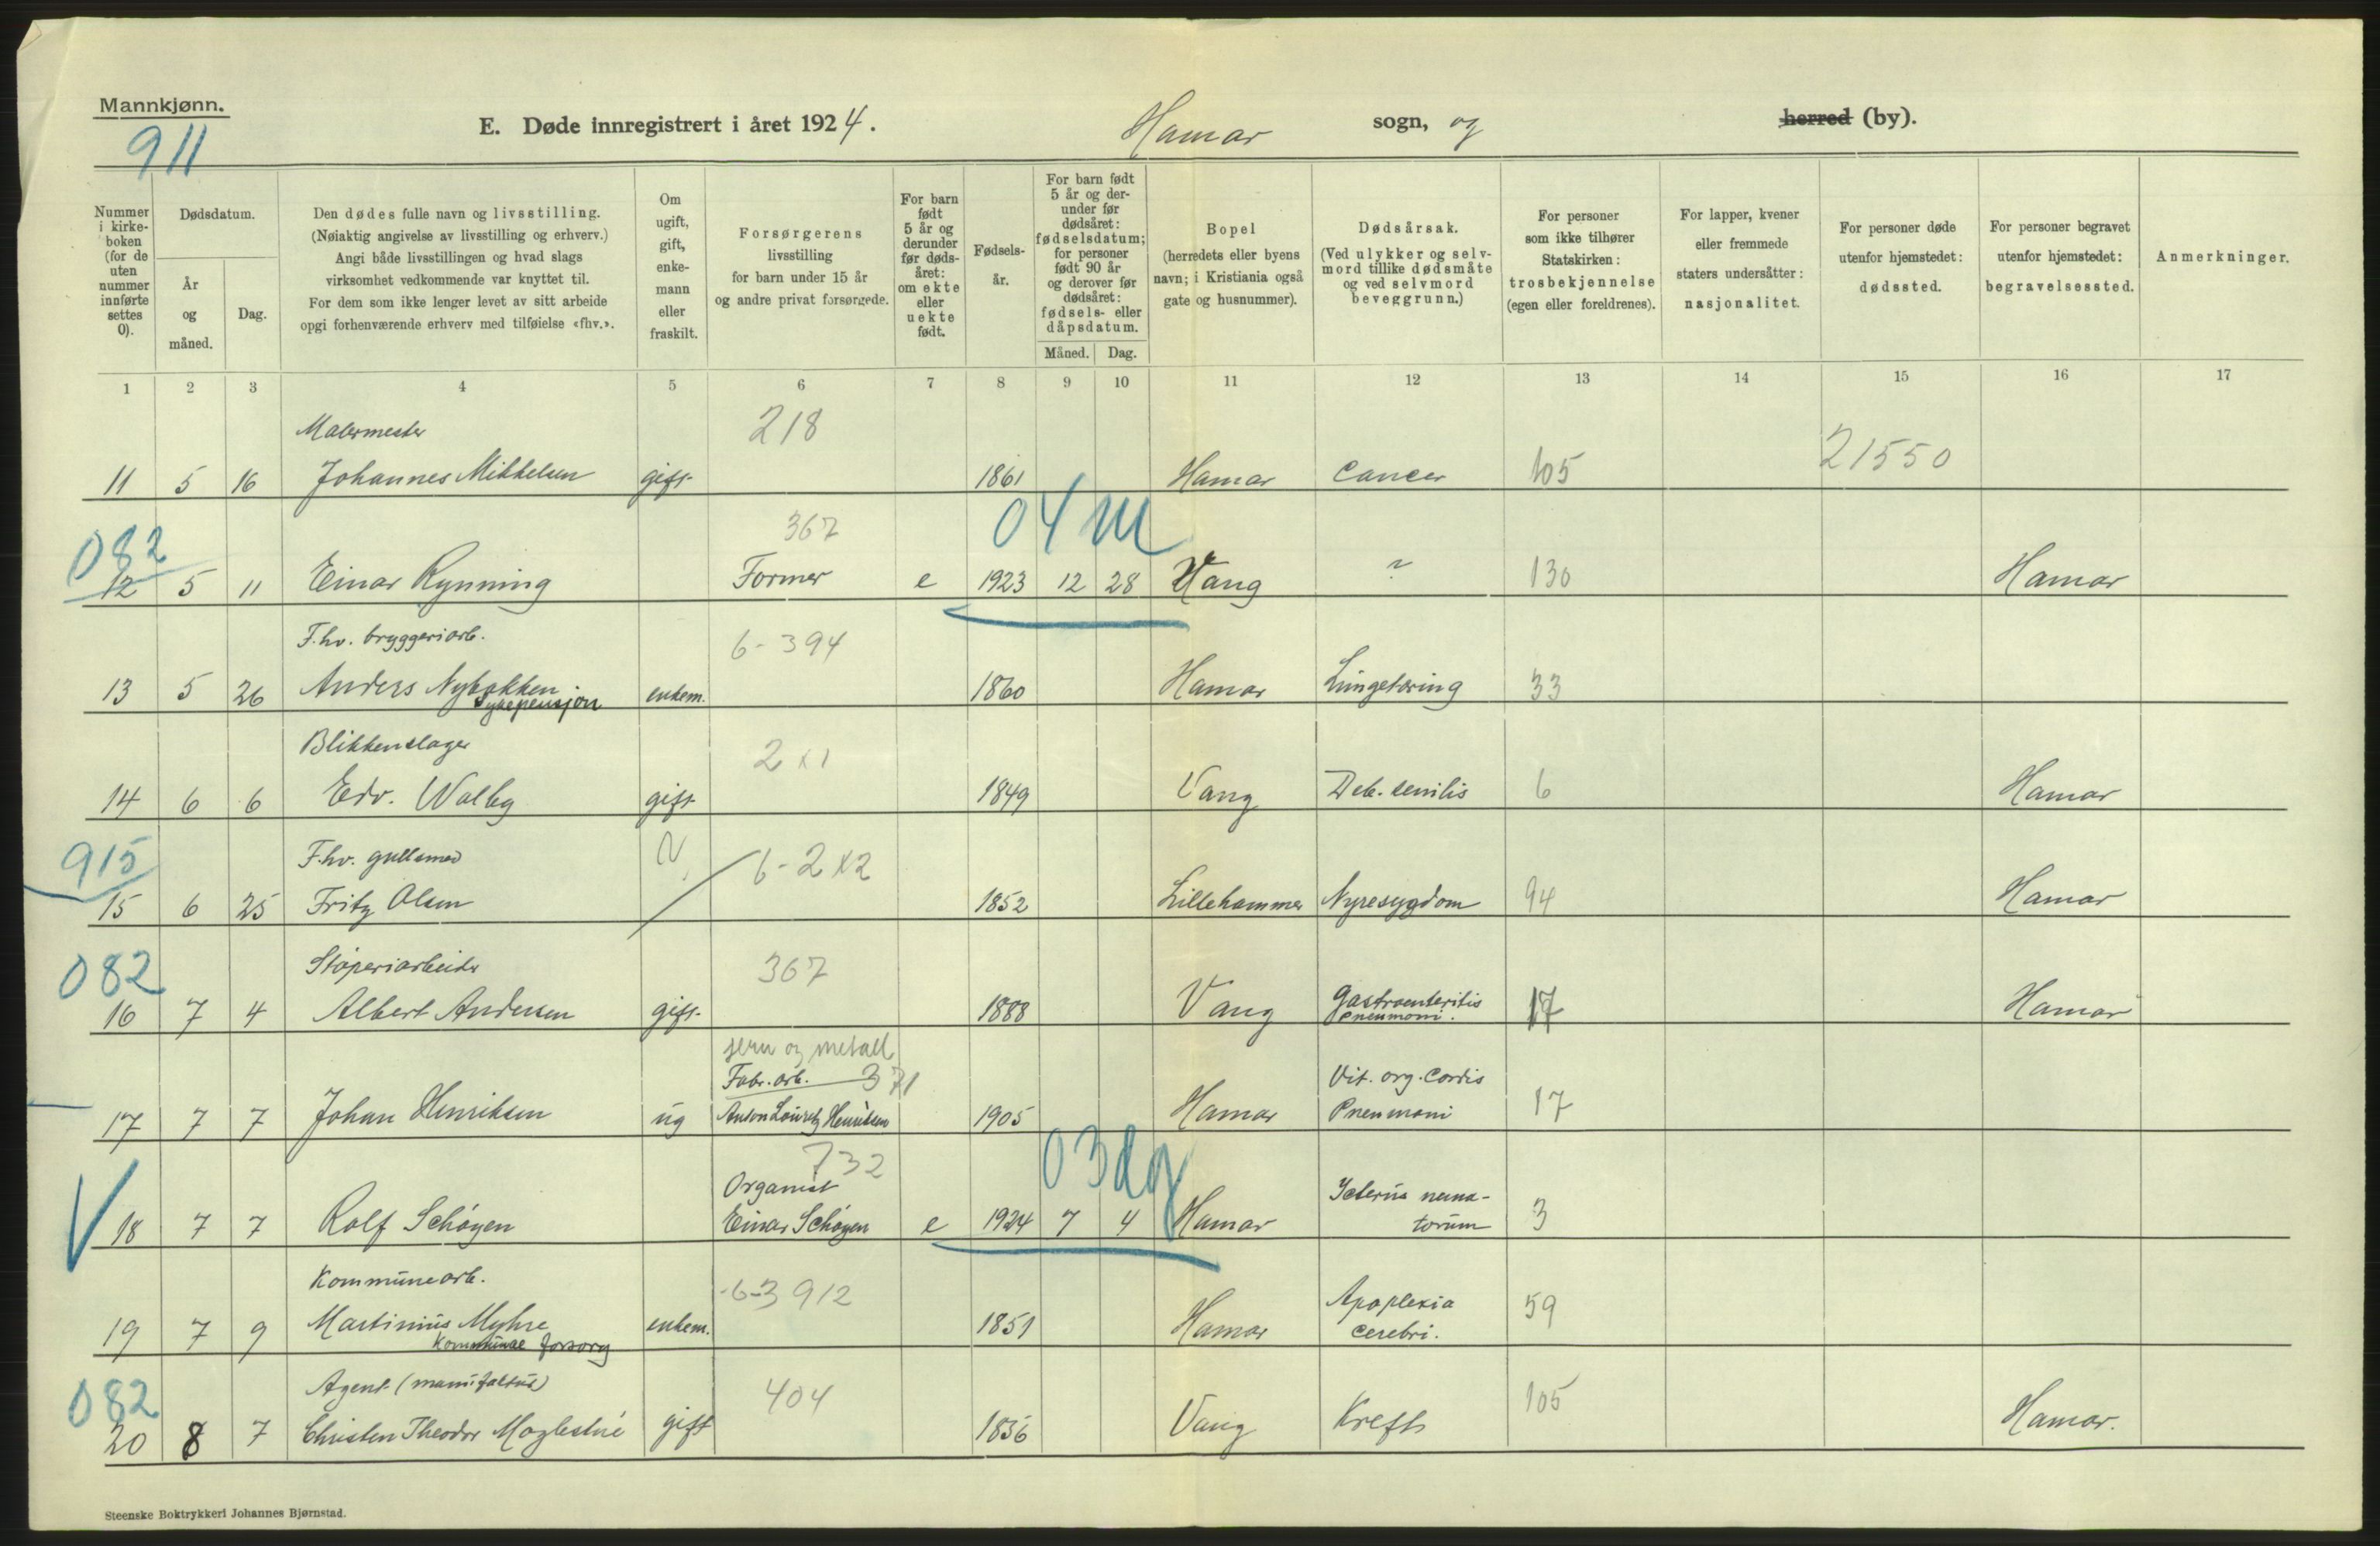 Mannkjønn.
911
E. Døde innregistrert i året 1924.
Hamar sogn, og herred (by).
Nummer i kirkeboken (for de uten nummer innførte settes 0).
Dødsdatum.
År og måned.
Dag.
Den dødes fulle navn og livsstilling.
(Nøiaktig angivelse av livsstilling og erhverv.)
Angi både livsstillingen og hvad slags
virksomhet vedkommende var knyttet til.
For dem som ikke lenger levet av sitt arbeide
opgi forhenværende erhverv med tilføielse «fhv.».
Om ugift, gift, enkemann eller fraskilt.
Forsørgerens
livsstilling
for barn under 15 år
og andre privat forsørgede.
For barn født 5 år og derunder før dødsåret: om ekte eller uekte født.
Fødselsår.
For barn født 5 år og derunder før dødsåret: fødselsdatum; for personer født 90 år og derover før dødsåret: fødsels- eller dåpsdatum.
Måned. Dag.
Bopel
(herredets eller byens
navn; i Kristiania også
gate og husnummer).
Dødsårsak.
(Ved ulykker og selvmord tillike dødsmåte og ved selvmord beveggrunn.)
For personer
som ikke tilhører
Statskirken:
trosbekjennelse
(egen eller foreldrenes).
For lapper, kvener
eller fremmede
staters undersåtter:
nasjonalitet.
For personer døde
utenfor hjemstedet:
dødssted.
For personer begravet
utenfor hjemstedet:
begravelsessted.
Anmerkninger.
1 2 3 4 5 6 7 8 9 10 11 12 13 14 15 16 17
Malermester 218
11 5 16 Johannes Mikkelsen gift 1861 Hamar Cancer 105 21550
082 367 04 m
12 5 11 Einar Rynning Former e 1923 12 28 Vang ? 130 Hamar
F.hv. bryggeriarb. 6-394
13 5 26 Anders Nybakken enkem. 1860 Hamar Lungetæring 33
Sykepensjon
Blikkenslager 2x1
14 6 6 Edv. Walby gift 1849 Vang Deb. senilis 6 Hamar
915 F.hv. gullsmed 6-2x2
15 6 25 Fritz Olsen 1852 Lillehammer Nyresygdom 94 Hamar
082 Støperiarbeider 367
16 7 4 Albert Andersen gift 1888 Vang Gastroenteritis Pneumoni. 17 Hamar
jern og metall
Fabr. arb. 371 Vit. org. Cordis
17 7 7 Johan Henriksen ug Anton Louretz Henriksen 1905 Hamar Pneumoni 17
732 03 dg
Organist Icterus neona-
18 7 7 Rolf Schøyen Einar Schøyen e 1924 7 4 Hamar torum 3
Kommunearb. -6-3912 Apoplexia
19 7 9 Martinius Myhre enkem. 1851 Hamar cerebri. 59
Kommunal forsorg
082 Agent (manufaktur) 404
20 8 7 Christen Theodor gift 1856 Vang Kreft 105 Hamar.
Steenske Boktrykkeri Johannes Bjørnstad.